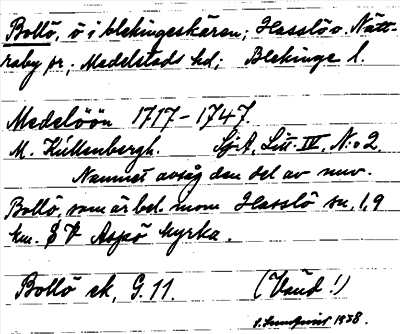 Bollö, ö i blekingeskären; Hasslö o. Nätt-
raby sr, Medelstads hd; Blekinge l.
Medelöön 1717-1747.
M. Kiellenbergh. Sj.A, Litt. IV, N:o 2
Namnet avsåg den del av nuv.
Bollö, som är bel. inom Hasslö sn. 1,9
km. S V Aspö kyrka.
Bollö ek, G. 11. (Vänd!)
S. Sundqvist 1938.